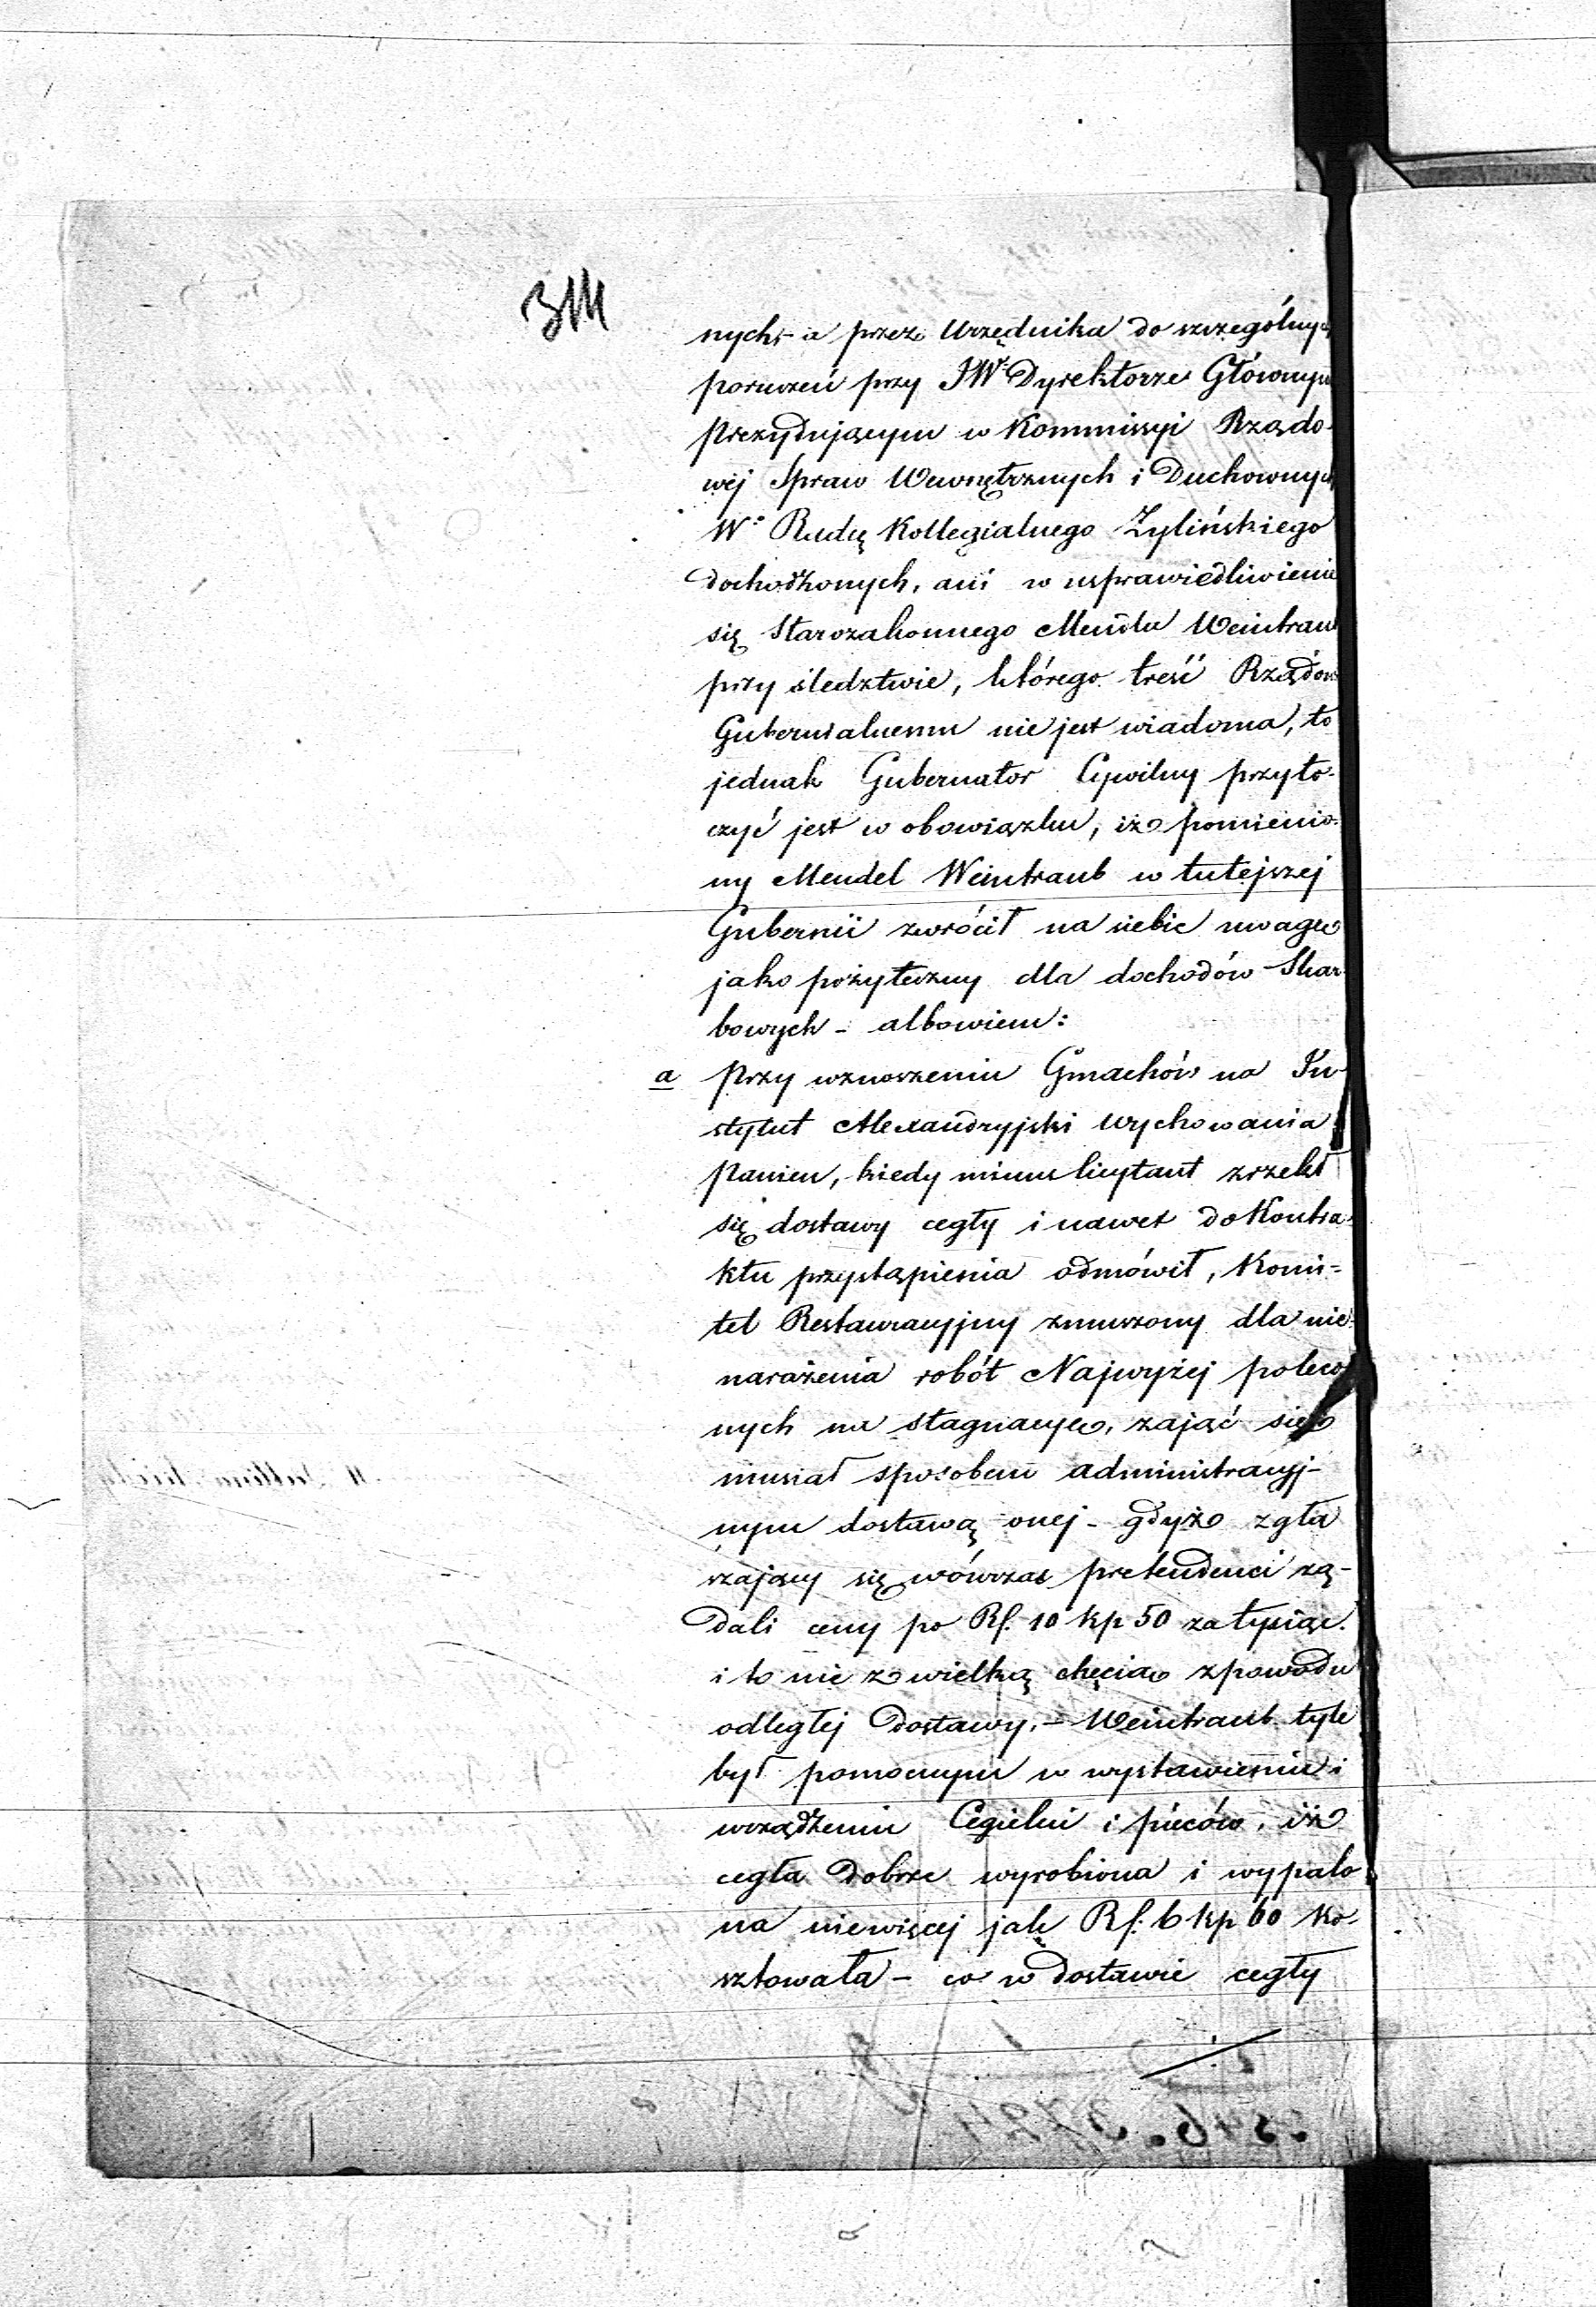 nych, - a przez Urzędnika do szczególnych
poruczeń przy JW. Dyrektorze Głównym
Prezydującym w Kommissyi Rządo-
wéj Spraw Wewnętrznych i Duchownych
Wo Radcę Kollegialnego Żylińskiego
dochodzonych, ani w usprawiedliwienie
się Starozakonnego Mendla Weintraub
przy śledztwie, którego treść Rządowi
Gubernialnemu nie jest wiadoma, to
jednak Gubernator Cywilny przyto-
czyć jest w obowiązku, iż pomienio-
ny Mendel Weintraub w tutejszéj
Gubernii zwrócił na siebie uwagę
jako pożyteczny dla dochodów Skar-
bowych - albowiem:
a przy wznoszeniu Gmachów na In-
stytut Alexandryjski Wychowania
Panien, kiedy minus licytant zrzekł
się dostawy cegły i nawet do Kontra-
ktu przystąpienia odmówił, Komi=
tet Restauracyjny zmuszony dla nie-
narażenia robót Najwyżéj poleco
nych na stagnacye, zająć się
musiał sposobem administracyj-
nym dostawą onéj - gdyż zgła
szający się wówczas pretendenci żą-
dali ceny po Rs. 10 kp 50 za tysiąc.
i to nie z wielką chęcią z powodu
odległéj dostawy, - Weintraub tyle
był pomocnym w wystawieniu i
urządzeniu Cegielni i piéców, iż
cegła dobrze wyrobiona i wypalo
na niewięcéj jak Rs. 6 kp 60 ko-
sztowała - co w dostawie cegły